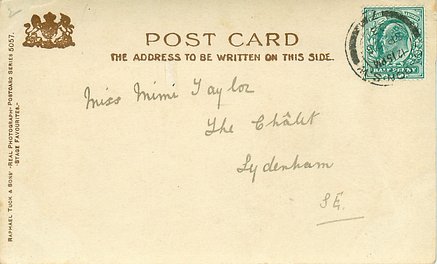 POST CARD
THE ADDRESS TO BE WRITTEN ON THIS SIDE.
Miss Mimi Taylor
The Châlet
Sydenham
S.E.
RAPHAEL TUCK & SONS' "REAL PHOTOGRAPH" POSTCARD SERIES 5057.
"STAGE FAVOURITES"
HALFPENNY